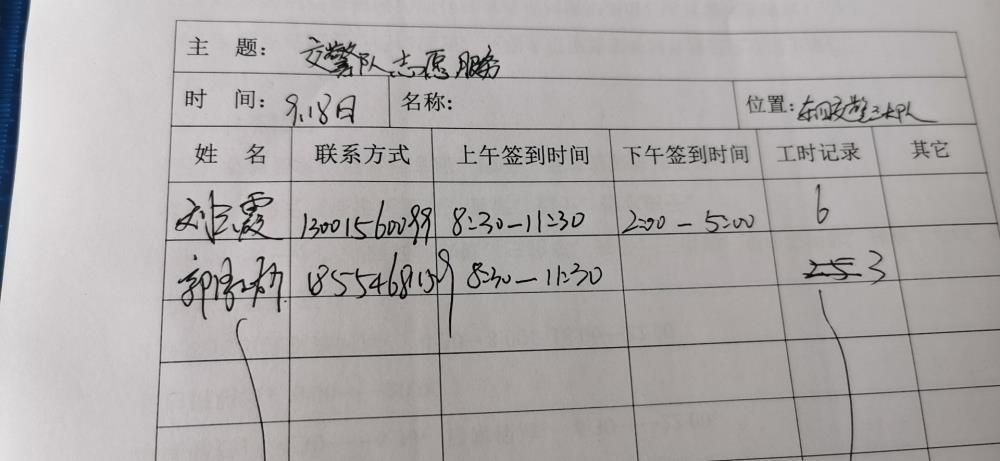 主 题: 交警队志愿服务
时 间: 9.18日 名称: 位置: 交警三大队
姓 名 联系方式 上午签到时间 下午签到时间 工时记录 其它
刘 霞 13001560099 8:30-11:30 2:00-5:00 6
郭 8:30-11:30 3